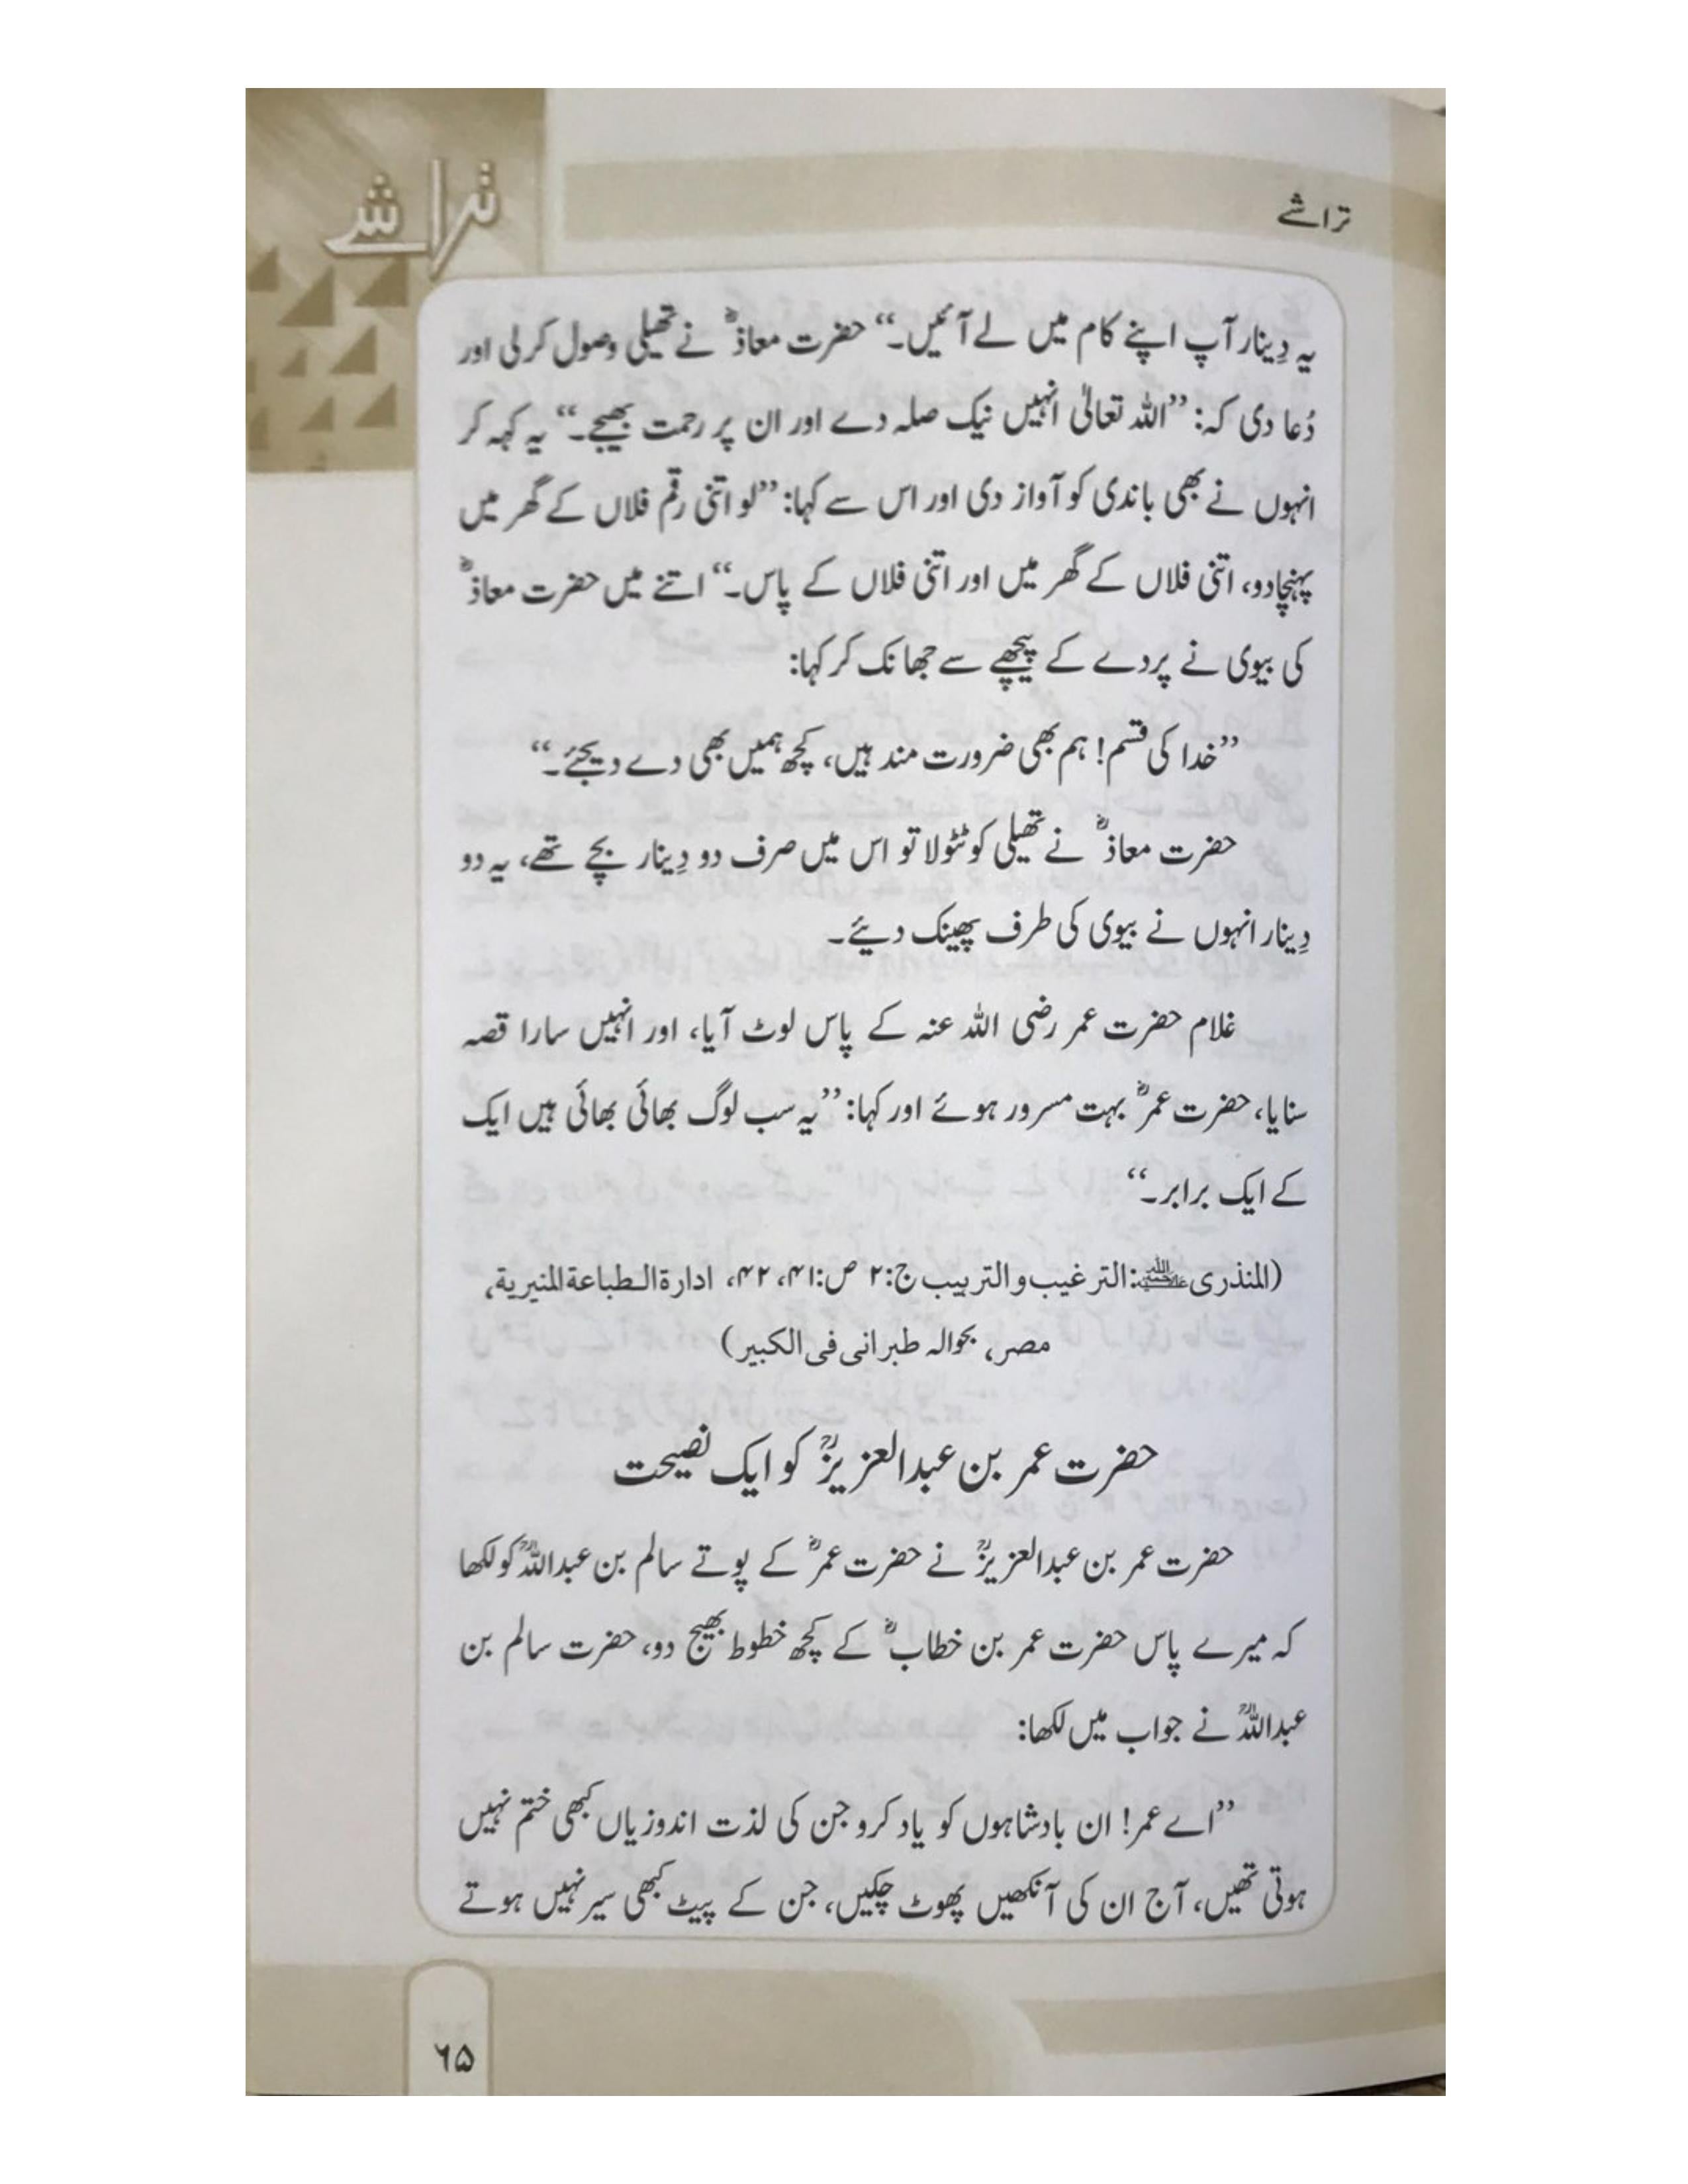 تراشے
تراشے
یہ دِینار آپ اپنے کام میں لے آئیں۔“ حضرت معاذؓ نے تھیلی وصول کرلی اور
دُعا دی کہ: ”اللہ تعالیٰ انہیں نیک صلہ دے اور ان پر رحمت بھیجے۔“ یہ کہہ کر
انہوں نے بھی باندی کو آواز دی اور اس سے کہا: ”لو اتنی رقم فلاں کے گھر میں
پہنچادو، اتنی فلاں کے گھر میں اور اتنی فلاں کے پاس۔“ اتنے میں حضرت معاذؓ
کی بیوی نے پردے کے پیچھے سے جھانک کر کہا:
”خدا کی قسم! ہم بھی ضرورت مند ہیں، کچھ ہمیں بھی دے دیجئے۔“
حضرت معاذؓ نے تھیلی کو ٹٹولا تو اس میں صرف دو دِینار بچے تھے، یہ دو
دِینار انہوں نے بیوی کی طرف پھینک دیئے۔
غلام حضرت عمر رضی اللہ عنہ کے پاس لوٹ آیا، اور انہیں سارا قصہ
سنایا، حضرت عمرؓ بہت مسرور ہوئے اور کہا: ”یہ سب لوگ بھائی بھائی ہیں ایک
کے ایک برابر۔“
(المنذری رحمۃ اللہ علیہ: الترغیب والترہیب ج:۲ ص:۴۱، ۴۲، ادارة الطباعة المنيرية،
مصر، بحوالہ طبرانی فی الکبیر)
حضرت عمر بن عبدالعزیزؒ کو ایک نصیحت
حضرت عمر بن عبدالعزیزؒ نے حضرت عمرؓ کے پوتے سالم بن عبداللہؒ کو لکھا
کہ میرے پاس حضرت عمر بن خطابؓ کے کچھ خطوط بھیج دو، حضرت سالم بن
عبداللہؒ نے جواب میں لکھا:
”اے عمر! ان بادشاہوں کو یاد کرو جن کی لذت اندوزیاں کبھی ختم نہیں
ہوتی تھیں، آج ان کی آنکھیں پھوٹ چکیں، جن کے پیٹ کبھی سیر نہیں ہوتے
۶۵